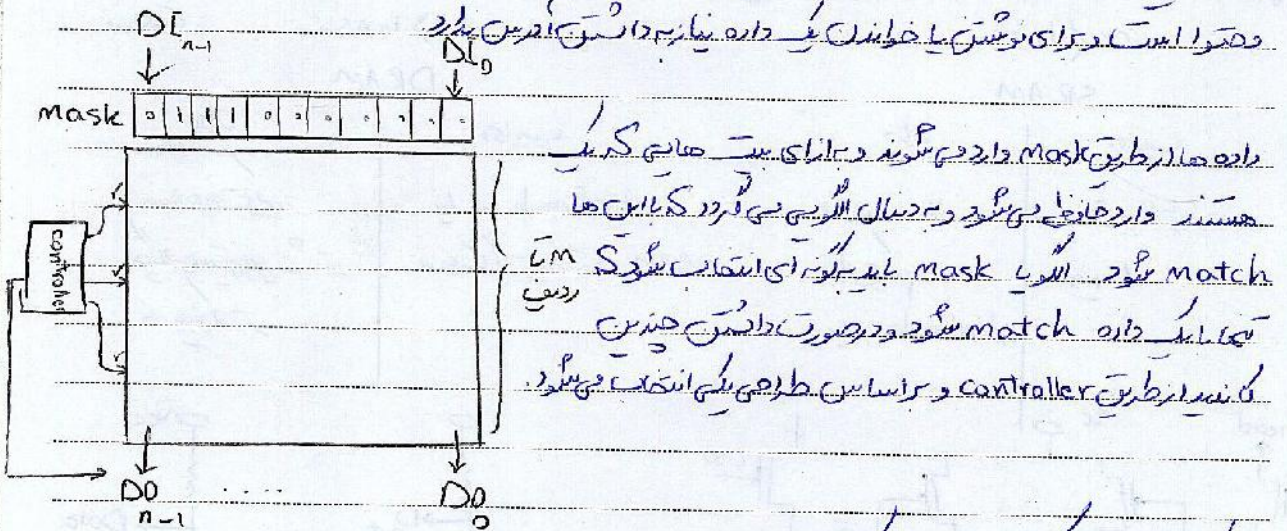 محتوا است و برای نوشتن یا خواندن یک داده نیاز به داشتن آدرس ندارد
DI n-1
DI 0
mask 0 1 1 1 0 0 0 0 0 0
داده ها از طریق mask وارد می شوند و به ازای بیت هایی که یک
هستند وارد حافظه می شود و به دنبال الگویی می گردد که با این ها
match شود. الگو یا mask باید به گونه ای انتخاب شود که
تنها با یک داده match شود و در صورت داشتن چندین
کاندید از طریق controller و بر اساس طراحی یکی انتخاب می شود.
controller
m تا
ردیف
DO n-1 .... DO 0